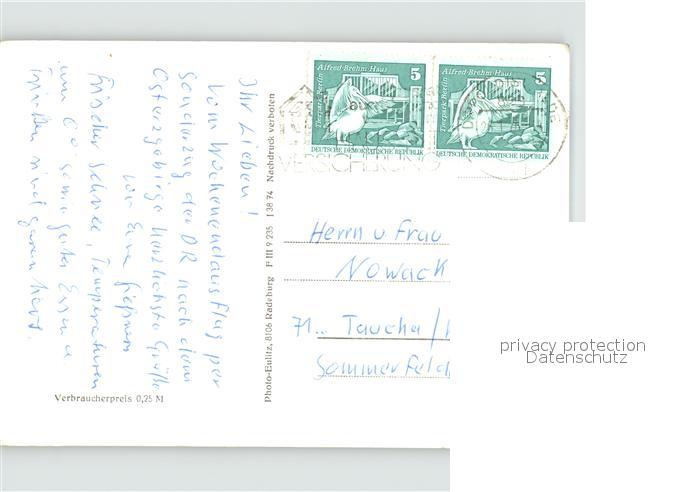 Ihr Lieben!
Vom Wochenendausflug per
Sonderzug der DR nach dem
Osterzgebirge herzlichste Grüße
von Eure
Frischer Schnee, Temperaturen
um 0° sowie gutes Essen u
Trinken sind garantiert.
Verbraucherpreis 0,25 M
Photo-Eulitz, 8106 Radeburg F III 9 235 I 38 74 Nachdruck verboten
Alfred-Brehm-Haus
5
Tierpark Berlin
DEUTSCHE DEMOKRATISCHE REPUBLIK
Alfred-Brehm-Haus
5
Tierpark Berlin
DEUTSCHE DEMOKRATISCHE REPUBLIK
VERSICHERUNG
Herrn u Frau
Nowack
71.. Taucha/
Sommerfeld
privacy protection
Datenschutz